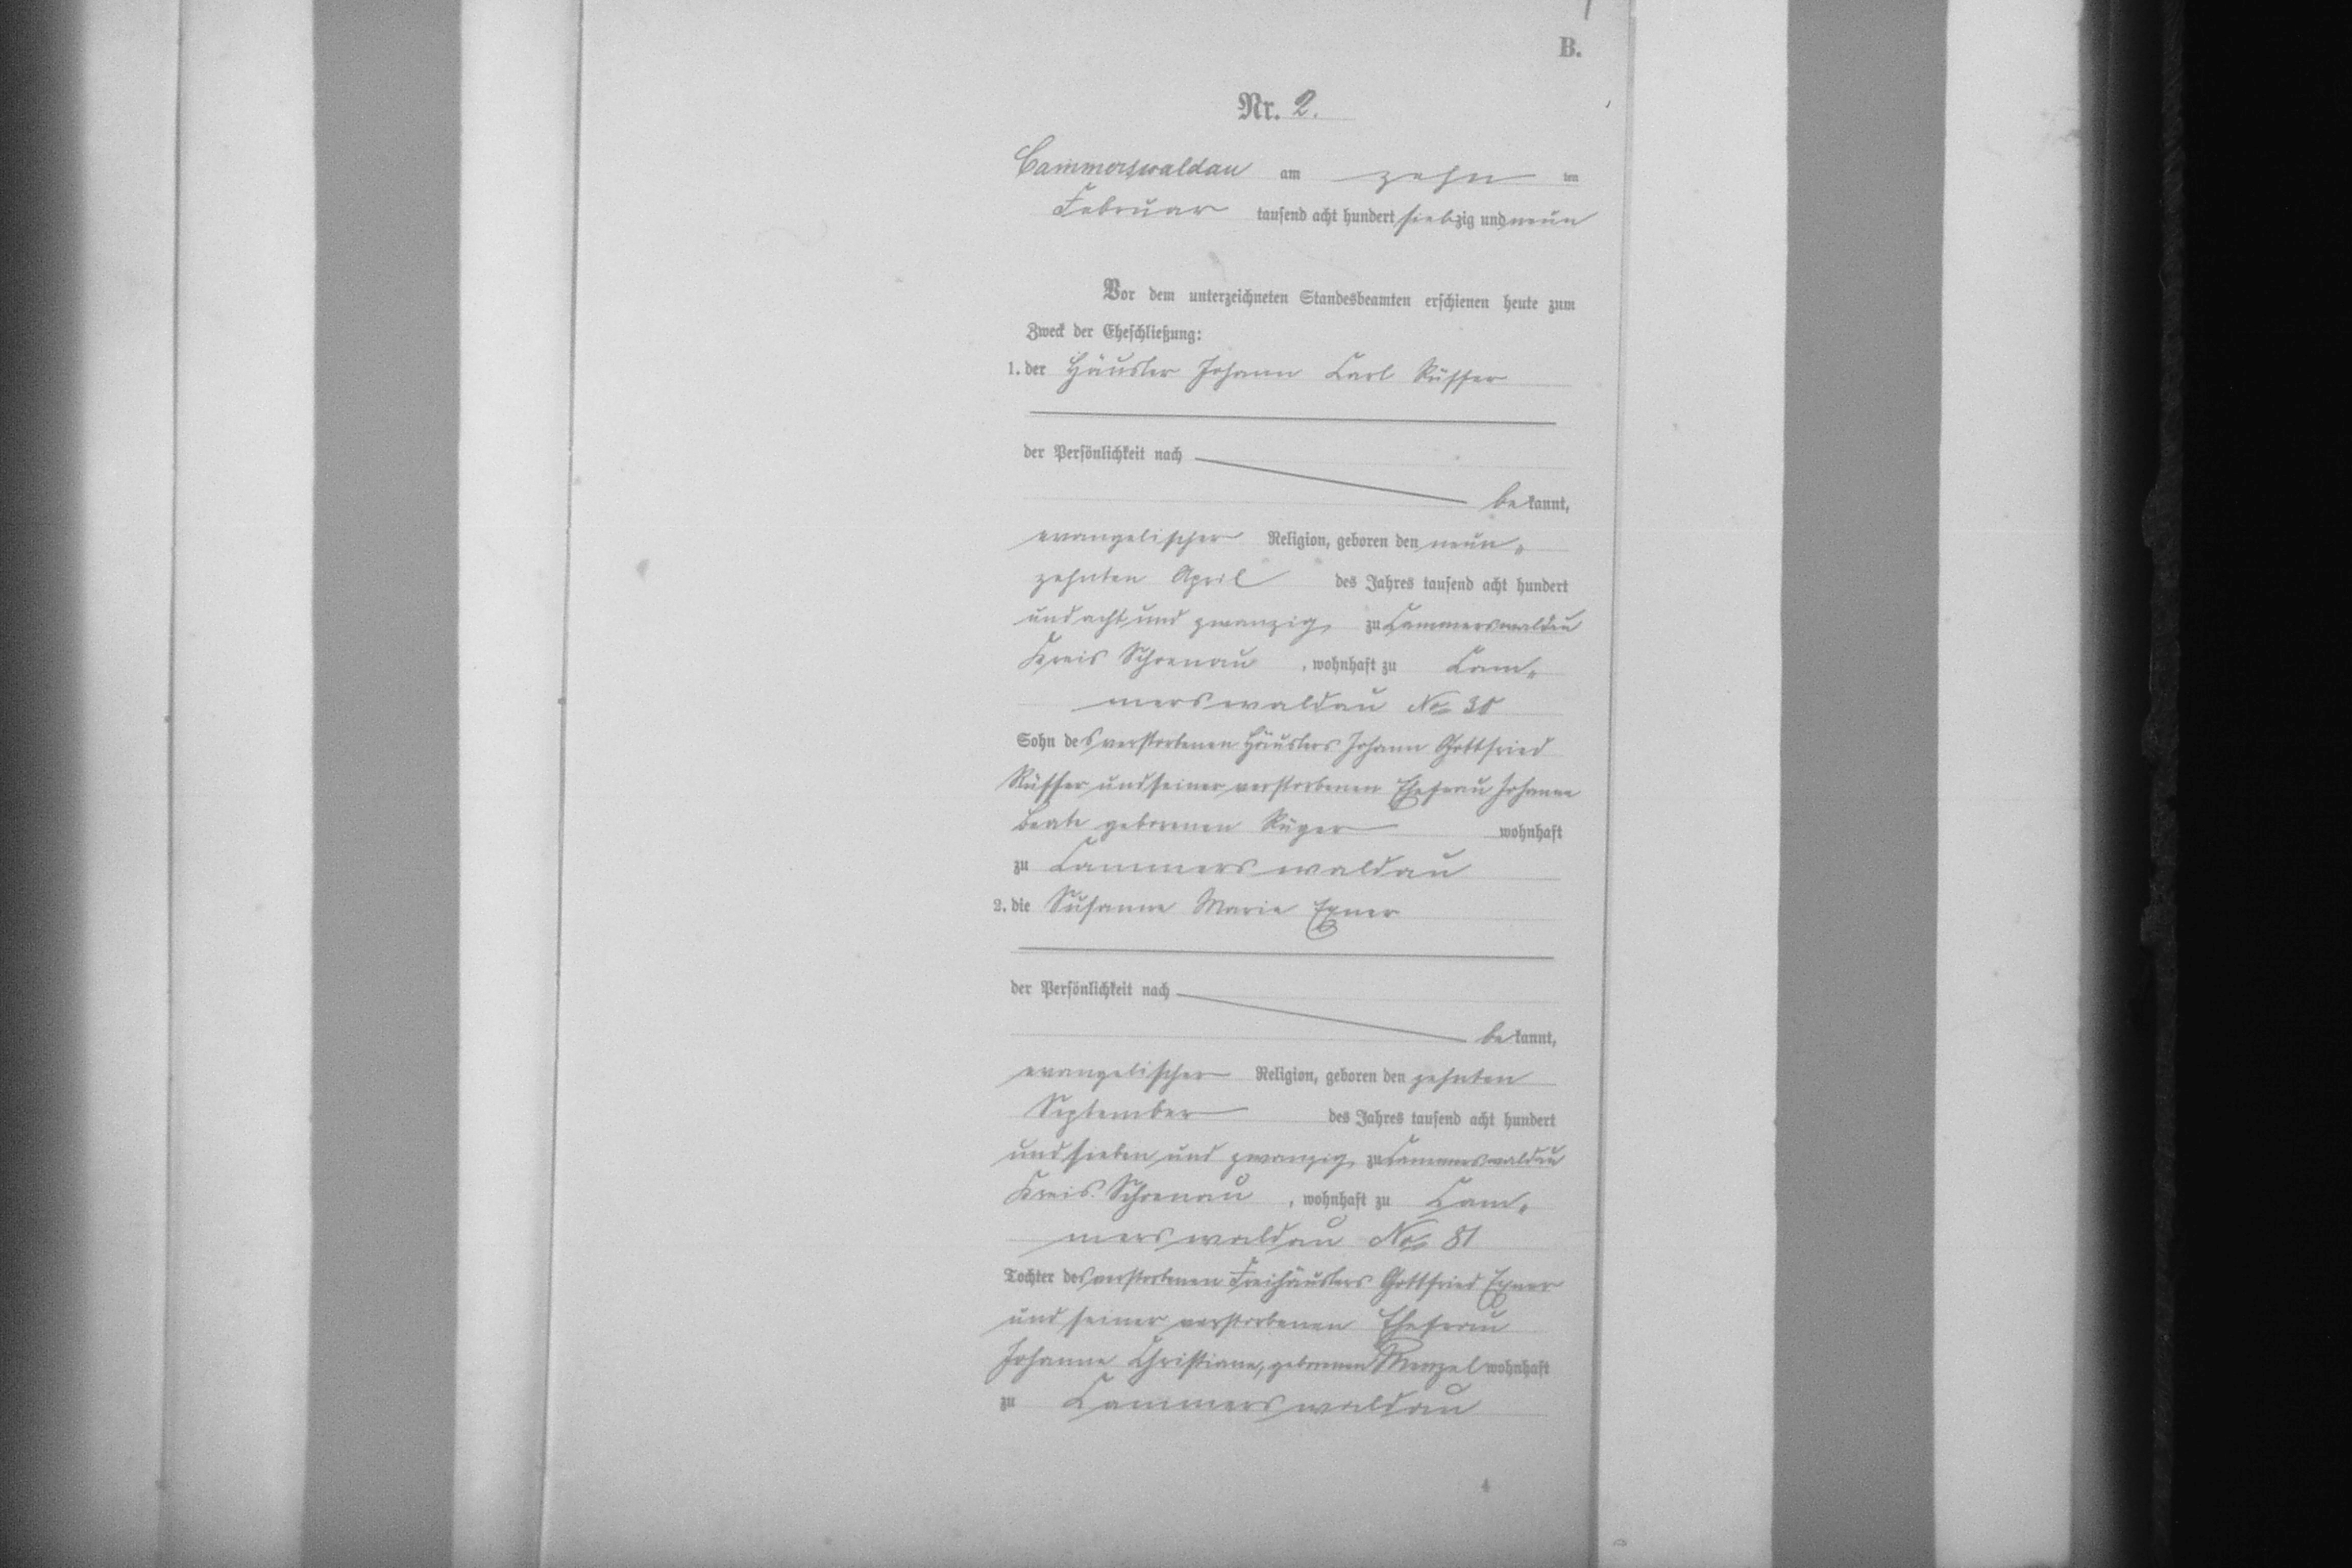 B.
Nr. 2.
Cammerswaldau am zehn ten
Februar tausend acht hundert siebzig und neun
Vor dem unterzeichneten Standesbeamten erschienen heute zum
Zweck der Eheschließung:
1. der Häusler Johann Carl Rüffer
der Persönlichkeit nach
bekannt,
evangelischer Religion, geboren den neun-
zehnten April des Jahres tausend acht hundert
und acht und zwanzig, zu Cammerswaldau
Kreis Schoenau, wohnhaft zu Cam-
merswaldau No
Sohn des verstorbenen Häuslers Johann Gottfried
Rüffer und seiner verstorbenen Ehefrau Johanne
Beate geborenen Rüger wohnhaft
zu Cammerswaldau
2. die Susanne Marie Exner
der Persönlichkeit nach
bekannt,
evangelischer Religion, geboren den zehnten
September des Jahres tausend acht hundert
und sieben und zwanzig, zu Cammerswaldau
Kreis Schoenau, wohnhaft zu Cam-
merswaldau No 81
Tochter des verstorbenen Freihäuslers Gottfried Exner
und seiner verstorbenen Ehefrau
Johanne Christiane, geborenen Menzel wohnhaft
zu Cammerswaldau
4